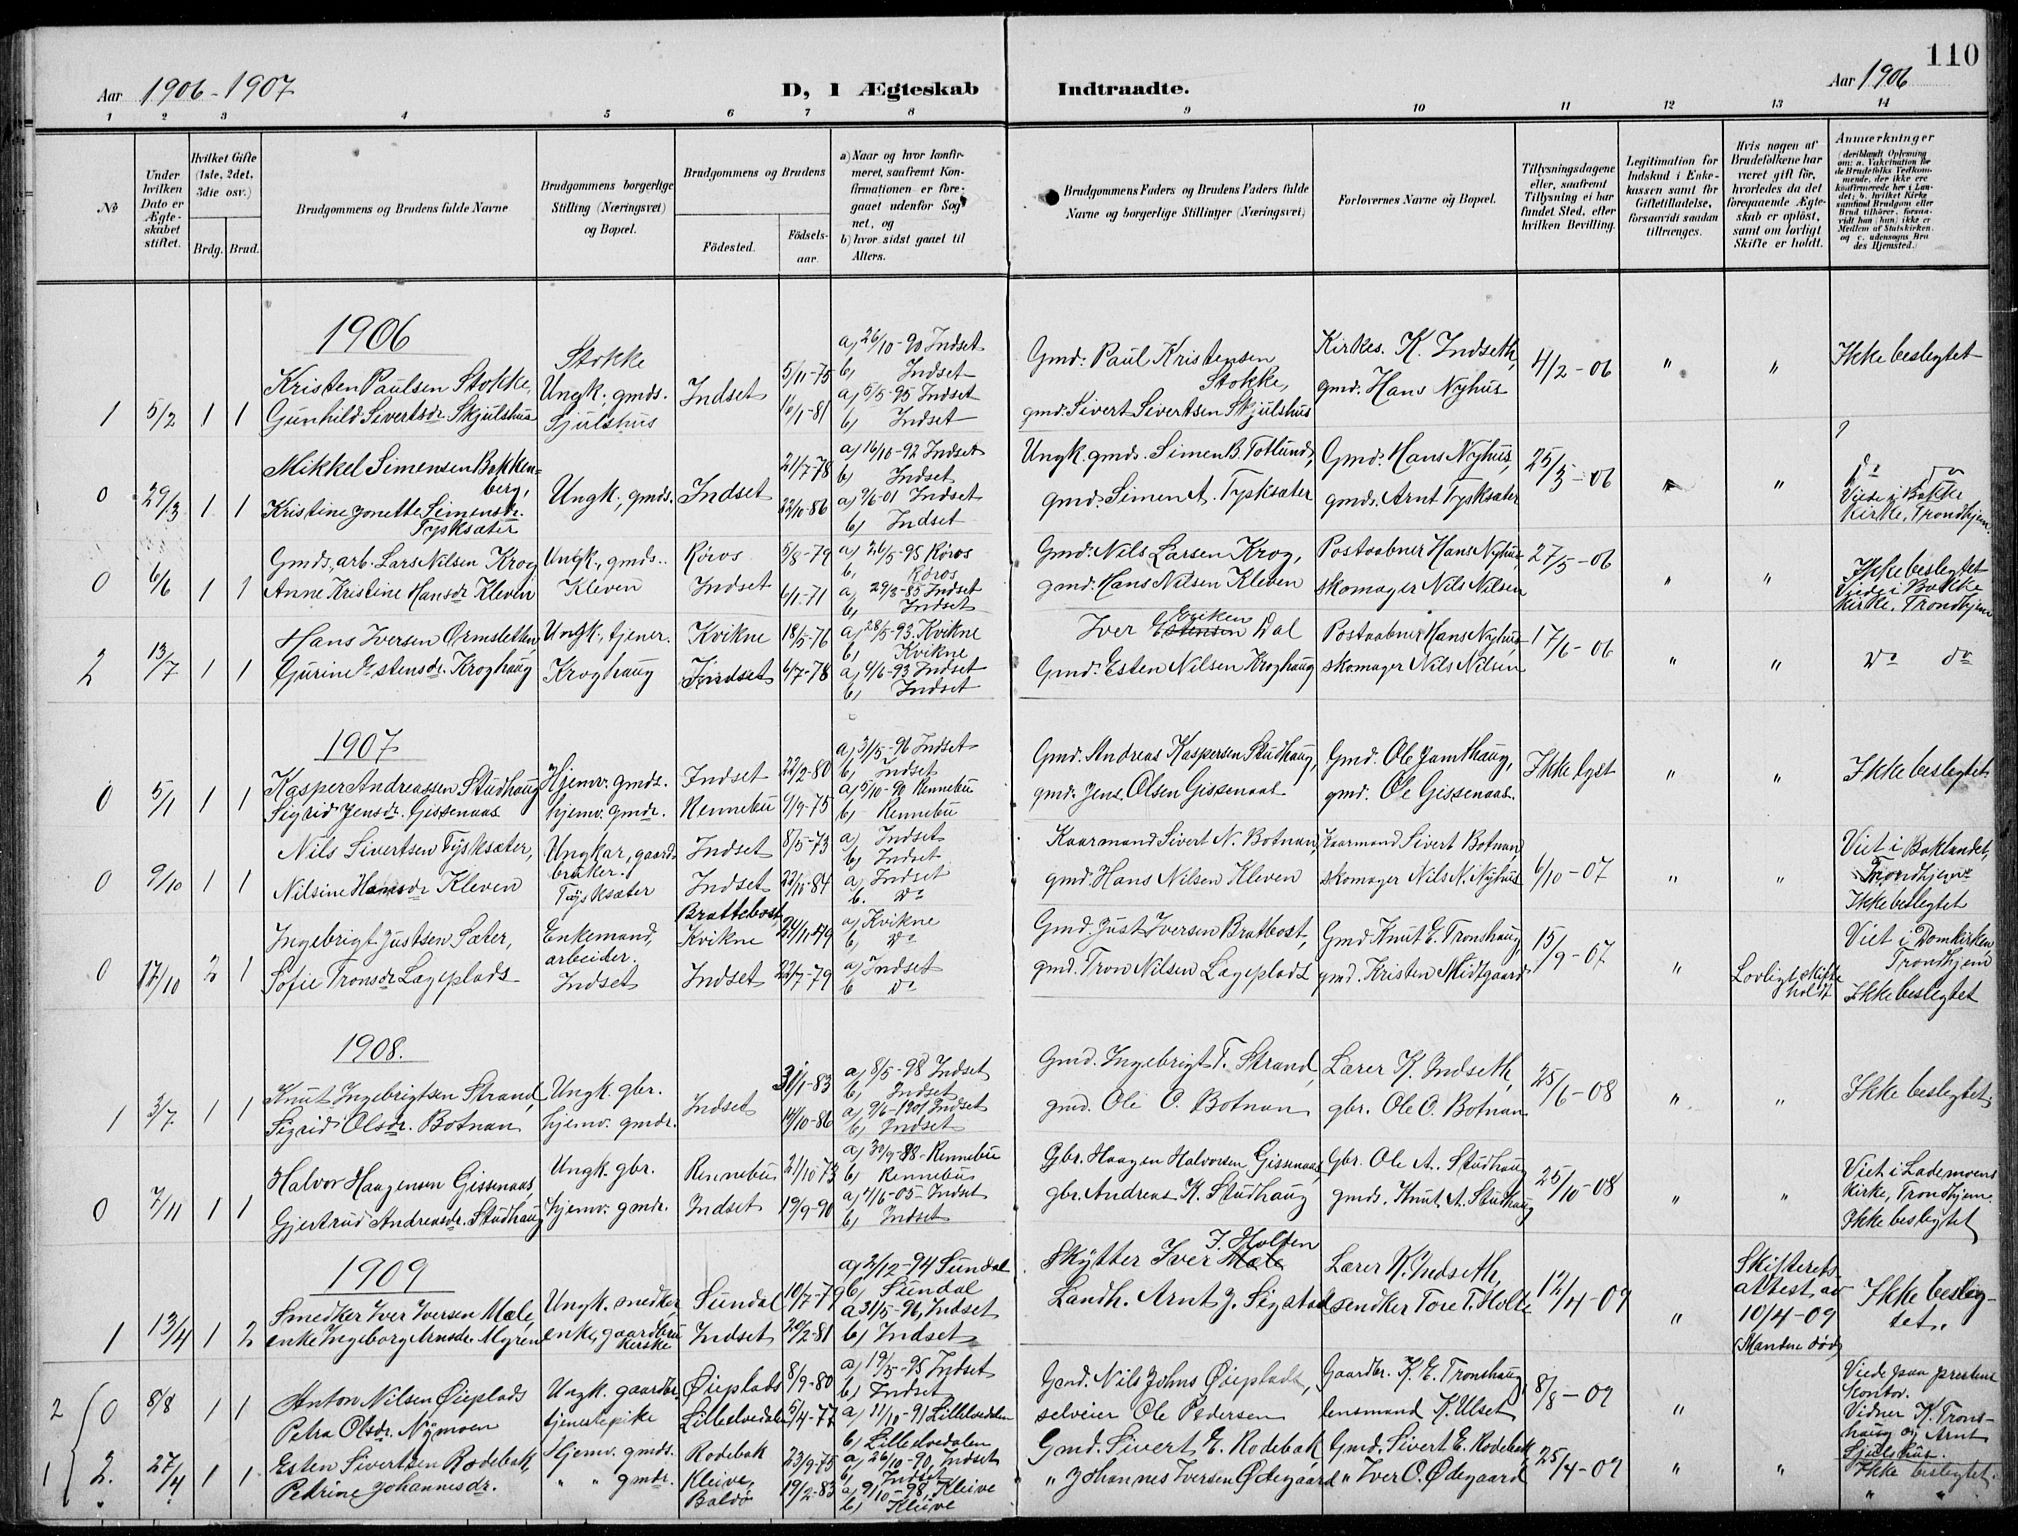 110
Aar 1906-1907
D, I Ægteskab Indtraadte.
Aar 1906
1 2 3 4 5 6 7 8 9 10 11 12 13 14
№
Under hvilken Dato er Ægteskabet stiftet.
Hvilket Gifte (1ste, 2det, 3die osv.)
Brdg. Brud.
Brudgommens og Brudens fulde Navne
Brudgommens borgerlige Stilling (Næringsvei) og Bopæl.
Brudgommens og Brudens
Födested.
Födselsaar.
a) Naar og hvor konfirmeret, saafremt Konfirmationen er foregaaet udenfor Sognet, og
b) hvor sidst gaaet til Alters.
Brudgommens Faders og Brudens Faders fulde Navne og borgerlige Stillinger (Næringsvei)
Forlovernes Navne og Bopæl.
Tillysningsdagene eller, saafremt Tillysning ei har fundet Sted, efter hvilken Bevilling.
Legitimation for Indskud i Enkekassen samt for Giftetilladelse, forsaavidt saadan tiltrænges.
Hvis nogen af Brudefolkene har været gift för, hvorledes da det foregaaende Ægteskab er oplöst, samt om lovligt Skifte er holdt.
Anmærkninger
1906
1 5/2 1 1
Kristen Paulsen Stokke,
Gunhild Sivertsdr. Skjulshus
Stokke
Ungk. gmds.
Sjulshus
Indset
5/11-75
16/1-81
a) 26/10-90 Indset
b) Indset
a) 5/5-95 Indset
b) Indset
Gmd. Paul Kristensen
Stokke,
gmd. Sivert Sivertsen Skjulshus
Kirkes. K. Indseth,
gmd. Hans Nyhus
4/2-06 " "
Ikke beslegtet
0 29/3 1 1
Mikkel Simensen Bakken=
berg,
Kristine Jonette Simensdr.
Tysksæter
Ungk., gmds. Indset
21/7-78
22/10-86
a) 16/10-92 Indset
b) Indset
a) 9/6-01 Indset
b) Indset
Ungk. gmds. Simen B. Totlund,
gmd. Simen A. Tysksæter
Gmd. Hans Nyhus,
gmds. Arnt Tysksæter
25/3-06 " "
do do
Viede i Bakke
Kirke, Trondhjem
0 6/6 1 1
Gmds, arb. Lars Nilsen Krog
Anne Kristine Hansdr Kleven
Ungk., gmds.
Kleven
Røros
Indset
5/8-79
6/1-71
a) 26/5-95 Røros
b) Røros
a) 29/3-85 Indset
b) Indset
Gmd. Nils Larsen Krog,
gmd. Hans Nilsen Kleven
Postaabner Hans Nyhus
skomager Nils Nilsen
27/5-06 " "
Ikke beslegtet
Viede i Bakke
Kirke, Trondhjem
2 13/7 1 1
Hans Iversen Ormsletten,
Gurine Estensdr. Kroghaug
Ungk., tjener.
Kroghaug
Kvikne
Indset
18/5-76
6/7-78
a) 28/5-93. Kvikne
b) Kvikne
a) 4/6-93 Indset
b) Indset
Eriken
Iver Estensen Dal
Gmd. Esten Nilsen Kroghaug
Postaabner Hans Nyhus
skomager Nils Nilsen
17/6-06 " "
do do
1907
0 5/1 1 1
Kasper Andreassen Studhaug
Sigrid Jensdr. Gissenaas
Hjemv. gmds.
hjemv. gmdr.
Indset
Rennebu
22/2-80
6/9-75
a) 3/5-96 Indset
b) Indset
a) 5/10-90 Rennebu
b) Rennebu
Gmd. Andreas Kaspersen Studhaug,
gmd. Jens Olsen Gissenaas
Gmd. Ole Jamthaug,
gmd. Ole Gissenaas.
Ikke lyst " "
Ikke beslegtet
0 9/10 1 1
Nils Sivertsen Tysksæter,
Nilsine Hansdr Kleven
Ungkar, gaard=
bruker.
Tysksæter
Indset
Indset
8/5-73
22/11-84
a) Indset
b) Indset
a) Indset
b. do
Kaarmand Sivert N. Botnan,
gmd. Hans Nilsen Kleven
Kaarmand Sivert Botnan,
skomager Nils N. Nyhus
6/10-07 " "
Viet i Baklandet,
Trondhjem
Ikke beslegtet
0 17/10 2 1
Ingebrigt Justsen Sæter,
Sofie Tronsdr Lageplads
Enkemand,
arbeider.
Indset
Brattebost
Kvikne
Indset
24/11-49
22/7-79
a) Kvikne
b) do
a) Indset
b do
Gmd. Just Iversen Bratbost,
gmd. Tron Nilsen Lageplads
Gmd. Knut E. Tronshaug,
gmd. Kristen Midtgaard
15/9-07 "
Lovligt skifte
holdt
Viet i Domkirken,
Trondhjem
Ikke beslegtet
1908.
1 3/7 1 1
Knut Ingebrigtsen Strand,
Sigrid Olsdr. Botnan
Ungk. gbr.
hjemv. gmdr.
Indset
31/1-83
14/10-86
a) 8/5-98 Indset
b) Indset
a) 9/6-1901 Indset
b) Indset
Gmd. Ingebrigt T. Strand,
gmd. Ole O. Botnan
Lærer K. Indseth,
gbr. Ole O. Botnan
25/6-08 " "
Ikke beslegtet
0 7/11 1 1
Halvor Haagensen Gissenaas,
Gjertrud Andreasdr. Studhaug
Ungk. gbr.
hjemv. gmdr.
Rennebu
Indset
21/10-73
19/9-90
b) Rennebu
a) 4/6-05 Indset
b) Indset
Gbr. Haagen Halvorsen Gissenaas,
gbr. Andreas K. Studhaug
Gbr. Ole A. Studhaug
gmds. Knut A. Studhaug
25/10-08 " "
Viet i Lademoens
Kirke, Trondhjem.
Ikke beslegtet
1909
1 13/4 1 2
Smedker Iver Iversen Mæle,
enke Ingeborg Arnsdr. Myren
Ungk. snedker
enke, gaardbru
kerske
Sundal
Indset
10/7-79
20/2-81
a) 2/12-94 Sundal
b) Sundal
a 31/5-96, Indset
b) Indset
I. Holten
Skytter Iver Mæle
Landh. Arnt J. Sigstad
Lærer K. Indseth,
sendker Tore T. Holte
12/4-09 "
Skifterets
attest av
10/4-09
(Manden död)
Ikke besleg-
tet.
2 0 8/8 1 1
Anton Nilsen Øieplads
Petra Olsdr. Nymoen
Ungk. gaardbr.
tjenestepike
Øieplads
Lilleelvedalen
8/9-80
5/4-77
a) 19/5-95 Indset
b) Indset
a) 11/10-91 Lilleelvedalen
b) Lilleelvedalen
Gmd. Nils Johns Øieplads,
selveier Ole Pedersen
Gaardbr. K. E. Tronshaug
lensmand K. Ulset
8/8-09 "
Viede paa prestens
kontor.
Vidner K. Trons-
haug og Arnt
Sjulshus.
1 2. 27/4 1 1
Esten Sivertsen Rodebak,
Petrine Johannesdr.
Hjemv. gmds.
" " gmdr.
Rodebak
Kleive,
Bolsö
23/9-75
19/2-83
a) 26/10-90, Indset
b) Indset
a) 9/10-98, Kleive
b) Kleive
Gmd. Sivert E. Rodebak,
" Johannes Iversen Ødegaard
Gmd. Sivert E. Rodebak,
" Iver O. Ødegaard
25/4-09 " "
Ikke beslegtet.
" "